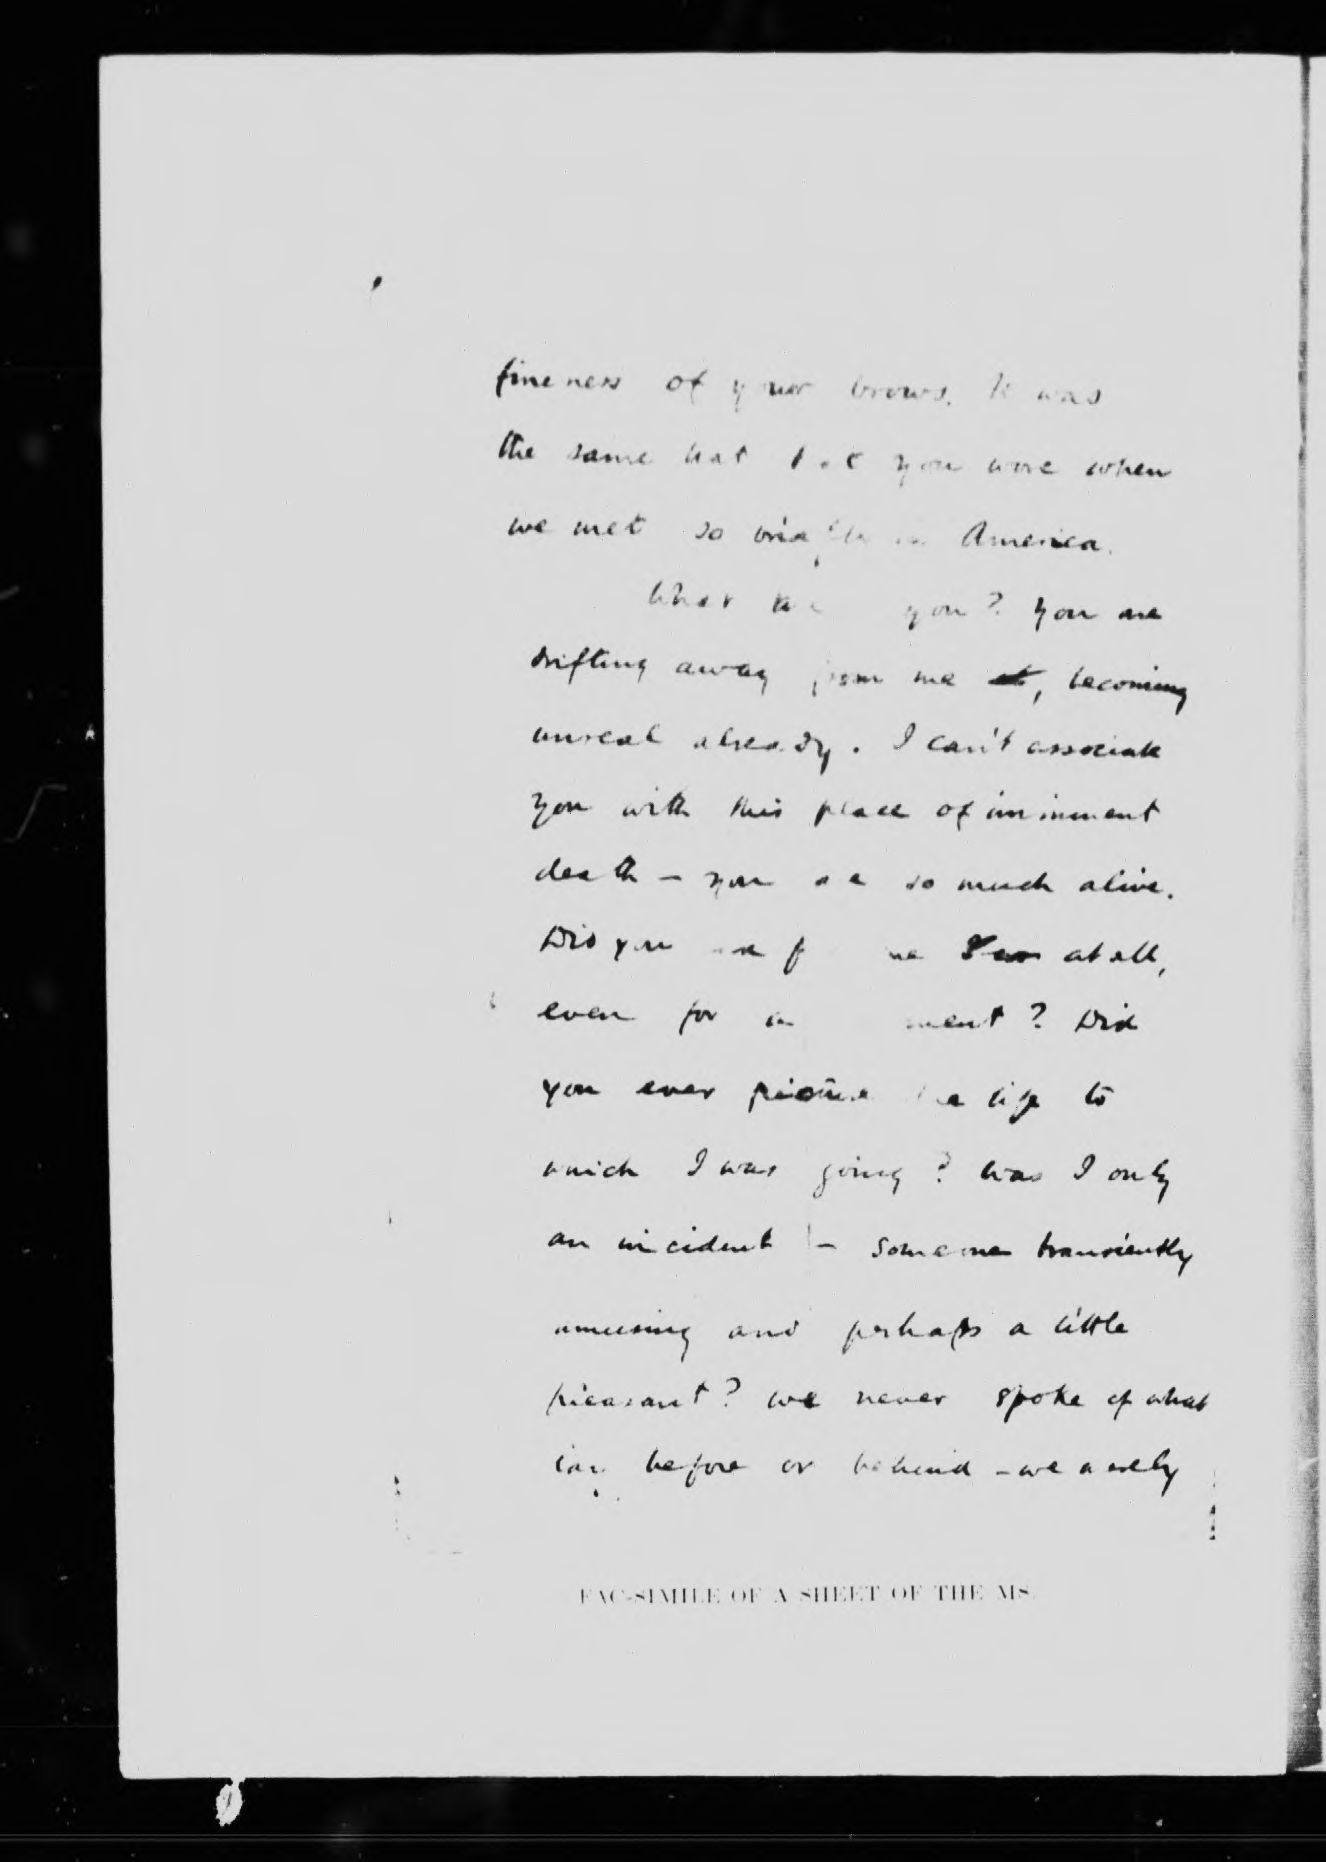 fineness of your brows. It was
the same hat you wore when
we met so in America.
What you? You are
drifting away from me, becoming
unreal already. I can't associate
you with this place of imminent
death – you are so much alive.
Did you at all,
even for a ? Did
you ever picture the life to
which I was going? Was I only
an incident – someone transiently
amusing and perhaps a little
pleasant? We never spoke of what
lay before or behind – we
FAC-SIMILE OF A SHEET OF THE MS.